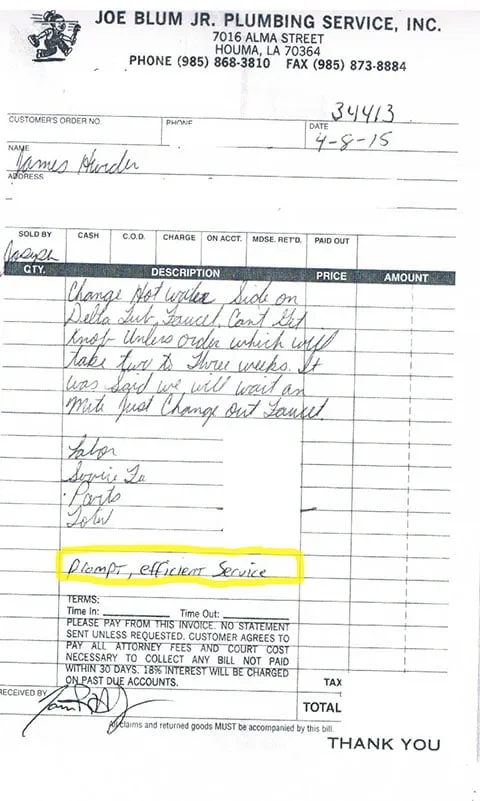 JOE BLUM JR. PLUMBING SERVICE, INC.
7016 ALMA STREET
HOUMA, LA 70364
PHONE (985) 868-3810 FAX (985) 873-8884
34413
CUSTOMER'S ORDER NO. PHONE DATE
4-8-15
NAME
James
ADDRESS
SOLD BY CASH C.O.D. CHARGE ON ACCT. MDSE. RET'D. PAID OUT
Joseph
QTY. DESCRIPTION PRICE AMOUNT
Change Hot water Side on
Delta Tub Faucet. Cant Get
Knob Unless order which will
take two to Three weeks. It
was Said we will wait an
Just Change out Faucet.
Labor
Service
Parts
Total
Prompt, efficient Service
TERMS:
Time In: Time Out:
PLEASE PAY FROM THIS INVOICE. NO STATEMENT
SENT UNLESS REQUESTED. CUSTOMER AGREES TO
PAY ALL ATTORNEY FEES AND COURT COST
NECESSARY TO COLLECT ANY BILL NOT PAID
WITHIN 30 DAYS. 18% INTEREST WILL BE CHARGED
ON PAST DUE ACCOUNTS.
TAX
RECEIVED BY
TOTAL
All claims and returned goods MUST be accompanied by this bill.
THANK YOU